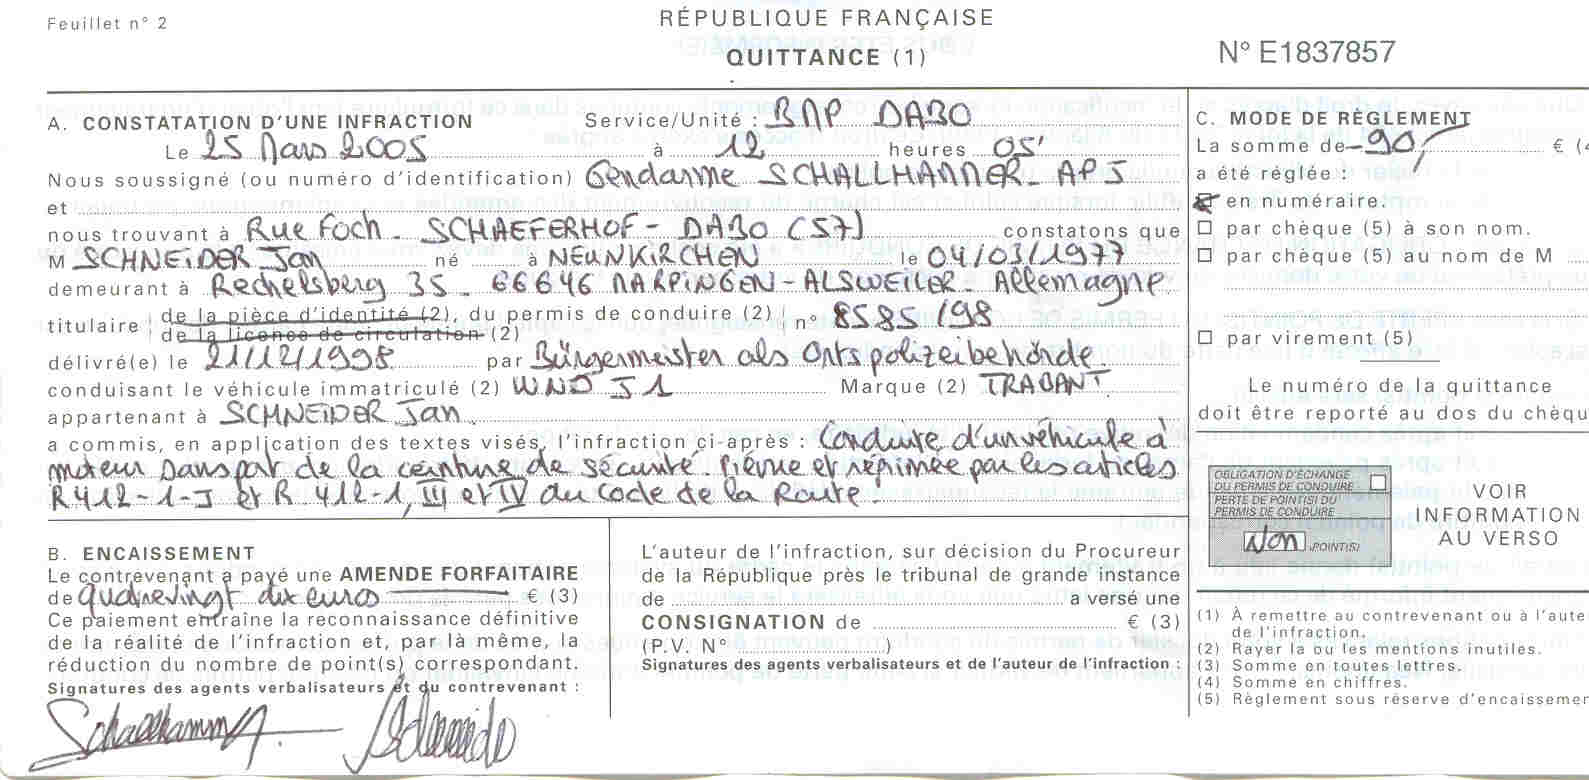 Feuillet n° 2
RÉPUBLIQUE FRANÇAISE
QUITTANCE (1)
N° E1837857
A. CONSTATATION D'UNE INFRACTION Service/Unité : BMP DABO
Le 25 Mars 2005 à 12 heures 05'
Nous soussigné (ou numéro d'identification) Gendarme SCHALLHAMMER - APJ
et
nous trouvant à Rue Foch - SCHAEFERHOF - DABO (57) constatons que
M SCHNEIDER Jan né à NEUNKIRCHEN le 04/03/1977
demeurant à Rechelsberg 35 - 66646 MARPINGEN - ALSWEILER - Allemagne
titulaire de la pièce d'identité (2), du permis de conduire (2) n° 8585/98
de la licence de circulation (2)
délivré(e) le 21/12/1998 par Bürgermeister als Ortspolizeibehörde
conduisant le véhicule immatriculé (2) WND J1 Marque (2) TRABANT
appartenant à SCHNEIDER Jan
a commis, en application des textes visés, l'infraction ci-après : Conduite d'un véhicule à
moteur sans port de la ceinture de sécurité Prévue et réprimée par les articles
R 412-1-I et R 412-1, III et IV du Code de la Route.
B. ENCAISSEMENT
Le contrevenant a payé une AMENDE FORFAITAIRE
de quatrevingt dix euros € (3)
Ce paiement entraîne la reconnaissance définitive
de la réalité de l'infraction et, par là même, la
réduction du nombre de point(s) correspondant.
Signatures des agents verbalisateurs et du contrevenant :
Schallhammer
Schneider
L'auteur de l'infraction, sur décision du Procureur
de la République près le tribunal de grande instance
de a versé une
CONSIGNATION de € (3)
(P.V. N° )
Signatures des agents verbalisateurs et de l'auteur de l'infraction :
C. MODE DE RÈGLEMENT
La somme de -90,- € (4
a été réglée :
en numéraire.
par chèque (5) à son nom.
par chèque (5) au nom de M
par virement (5)
Le numéro de la quittance
doit être reporté au dos du chèqu
OBLIGATION D'ÉCHANGE
DU PERMIS DE CONDUIRE :
PERTE DE POINT(S) DU
PERMIS DE CONDUIRE
Non POINT(S)
VOIR
INFORMATION
AU VERSO
(1) À remettre au contrevenant ou à l'aute
de l'infraction.
(2) Rayer la ou les mentions inutiles.
(3) Somme en toutes lettres.
(4) Somme en chiffres.
(5) Règlement sous réserve d'encaissemen